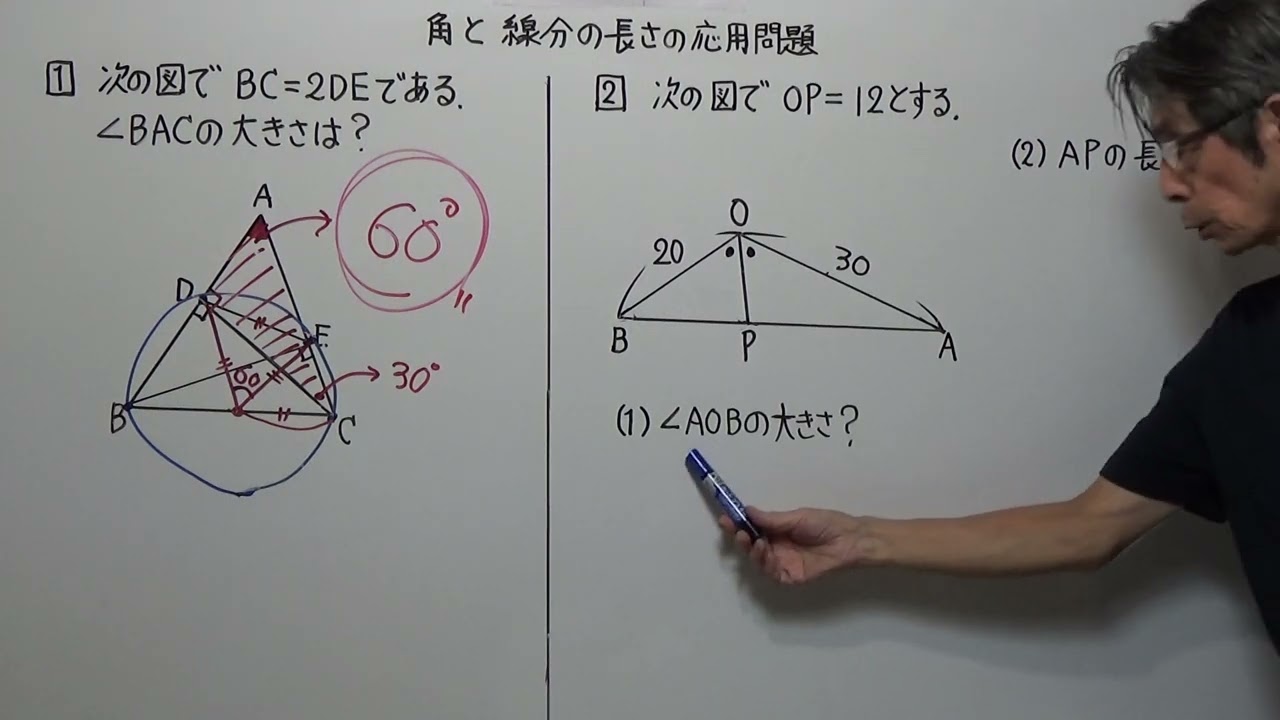 角と線分の長さの応用問題
1 次の図で BC=2DEである.
∠BACの大きさは?
A
60°
D
E
30°
B
C
2 次の図で OP=12とする.
(2) APの長
O
20
30
B
P
A
(1) ∠AOBの大きさ?